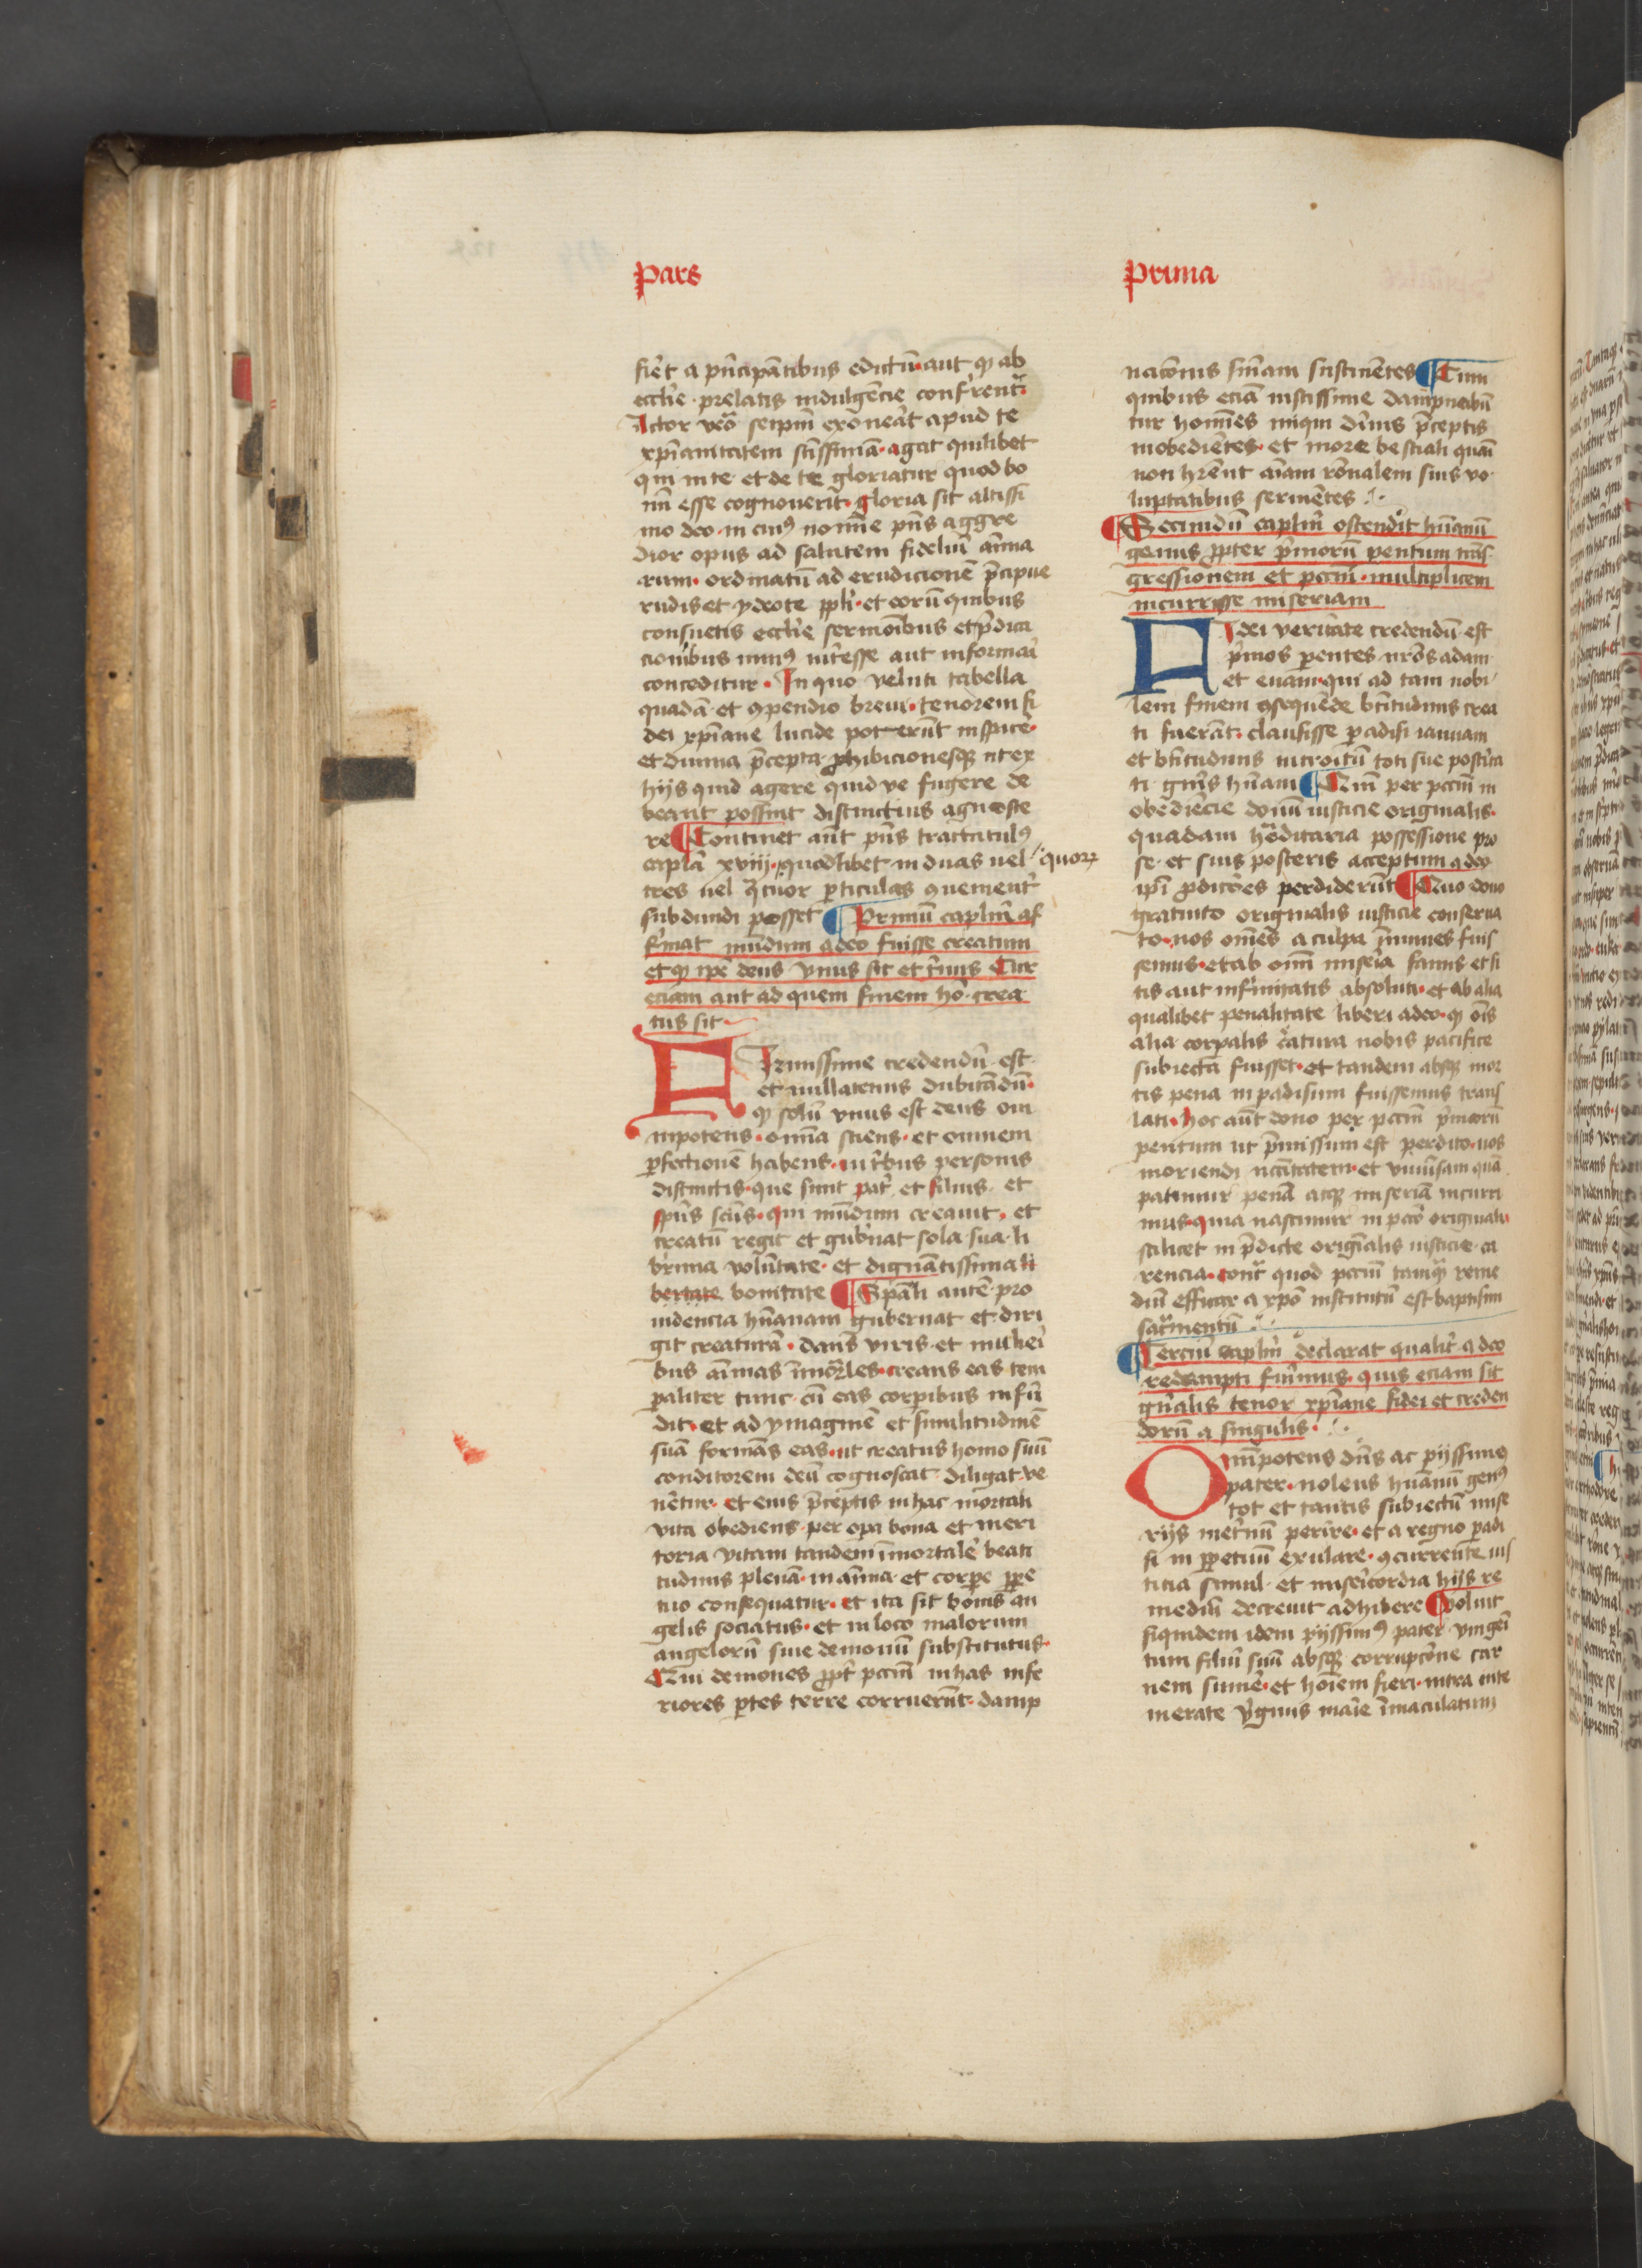 Pars
fiēt a pn̄cipātibus edictū aut qꝫ ab
ecclīe prelatis indulgēcie confrent᷑
Actor vero seipm̄ exoneāt apud te
xpīanitatem sc̄issimā agat quilibet
qui in te et de te gloriatur quod bo
nū esse cognouerit gloria sit altissi
mo deo in cuiꝰ noīe pn̄s aggre
dior opus ad salutem fideliū anīma
rum ordinatū ad erudicionē p̄cipue
rudis et ydeote ppli et eorū quibus
consuetis ecclīe sermōibus et p̄dica
cionibus minꝰ int̄esse aut informāi
conceditur In quo veluti tabella
quadā et ꝯpendio breui tenorem fi
dei xpīane lucide poterūt inspicē
et diuina p̄cepta ꝓhibicionesqꝫ ut ex
hijs quid agere quid ve fugere de
beant possint distinctius agnosce
re Continet aūt pn̄s tractatulꝰ
capl̄a xviij quodlibet in duas uel quorꝫ
tres uel q̄tuor ꝑticulas ꝯuenient᷑
subdiuidi posset Primū caplm̄ af
firmat mūdum a deo fuisse creatum
et qꝫ ip̄e deus vnus sit et trinus Cur
eciam aut ad quem finem hō crea
tus sit
Firmissime credendū est
et nullatenus dubitādū
qꝫ solū vnus est deus om
nipotens om̄ia sciens et omnem
ꝑfectionē habens in trībus personis
distinctis que sunt pat̄ et filius et
spūs sc̄us qui mūdum creauit et
creatū regit et gubn̄at sola sua li
b̄rima volūtate et dignātissima li
bertate bonitate Spāli autē pro
uidencia hūanam gubernat et diri
git creaturā dans viris et muliei
bus aīmas īmor̄les creans eas tem
paliter tunc cū eas corpibus infū
dit et ad ymaginē et similitudinē
suā formās eas ut creatus homo suū
conditorem deū cognoscat diligat ve
nētur et eius p̄ceptis in hac mortali
vita obediens per opa bona et meri
toria vitam tandem īmortalē beati
tudinis plenā in anīma et corꝑe ꝑpe
tuo consequatur et ita sit bonis an
gelis sociatus et in loco malorum
angelorū siue demonū substitutus
Qui demones ꝓpt̄ pccm̄ in has infe
riores ꝑtes terre corruerūt damp
Prima
nacōnis sn̄iam sustinētes Cum
quibus eciā iustissime dampnabū
tur homīes iniqui dīuis p̄ceptis
inobediētes et more bestiali quāi
non hrēnt aīam rōnalem suis vo
luptatibus seruiētes
Secundū caplm̄ ostendit hūanū
genus ꝓpter pīmorū pentum trās
gressionem et pccm̄ multiplicem
incurrisse miseriam
Fidei veritate credendū est
pīmos ꝑentes nrōs adam
et euam qui ad tam nobi
lem finem ꝯsequēde btītudinis crea
ti fuerāt clausisse ꝑadisi ianuam
et btītudinis introitū toti sue postīta
ti gnīs hūani Cum per pccm̄ in
obediēcie donū iusticie originalis
quadam hēditaria possessione pro
se et suis posteris acceptum a deo
ip̄i ꝓdicōes perdiderūt Quo dono
gratuito originalis iusticie conserua
to nos omēs a culpa īmunes fuis
semus et ab oīm miseīa famis et si
tis aut infirmitatis absoluti et ab alia
qualibet penalitate liberi adeo qꝫ oīs
alia corpalis c̄atura nobis pacifice
subiecta fuisset et tandem absqꝫ mor
tis pena in ꝑadisum fuissemus trans
lati hoc aūt dono per pccm̄ pīmorū
pentum ut p̄missum est perdito nos
moriendi nc̄itatem et vniūsam quā
patimur penā atqꝫ miseriā incurri
mus quia nascimur in pccō originali
scilicet in p̄dicte origīalis iusticie ca
rencia cont᷑ quod pccm̄ tamqꝫ reme
diū efficax a xpō institutū est baptismi
sac᷑mentū
Terciū caplm̄ declarat qualit̄ a deo
redempti fuimus quis eciam sit
gn̄ealis tenor xpīane fidei et creden
dorū a singulis
Omīpotens dn̄s ac pijssimꝰ
pater nolens hūanū genꝰ
tot et tantis subiectū mise
rijs inet̄nū perire et a regno ꝑadi
si in ꝑpetuū exulare ꝯcurrente ius
titia simul et misericordia hijs re
mediū decreuit adhibere Voluit
siquidem idem pijssimꝰ pater vnigeī
tum filiū suū absqꝫ corrupcōne car
nem sumē et hoīem fieri intra inte
merate v̄ginis maīe īmaculatum